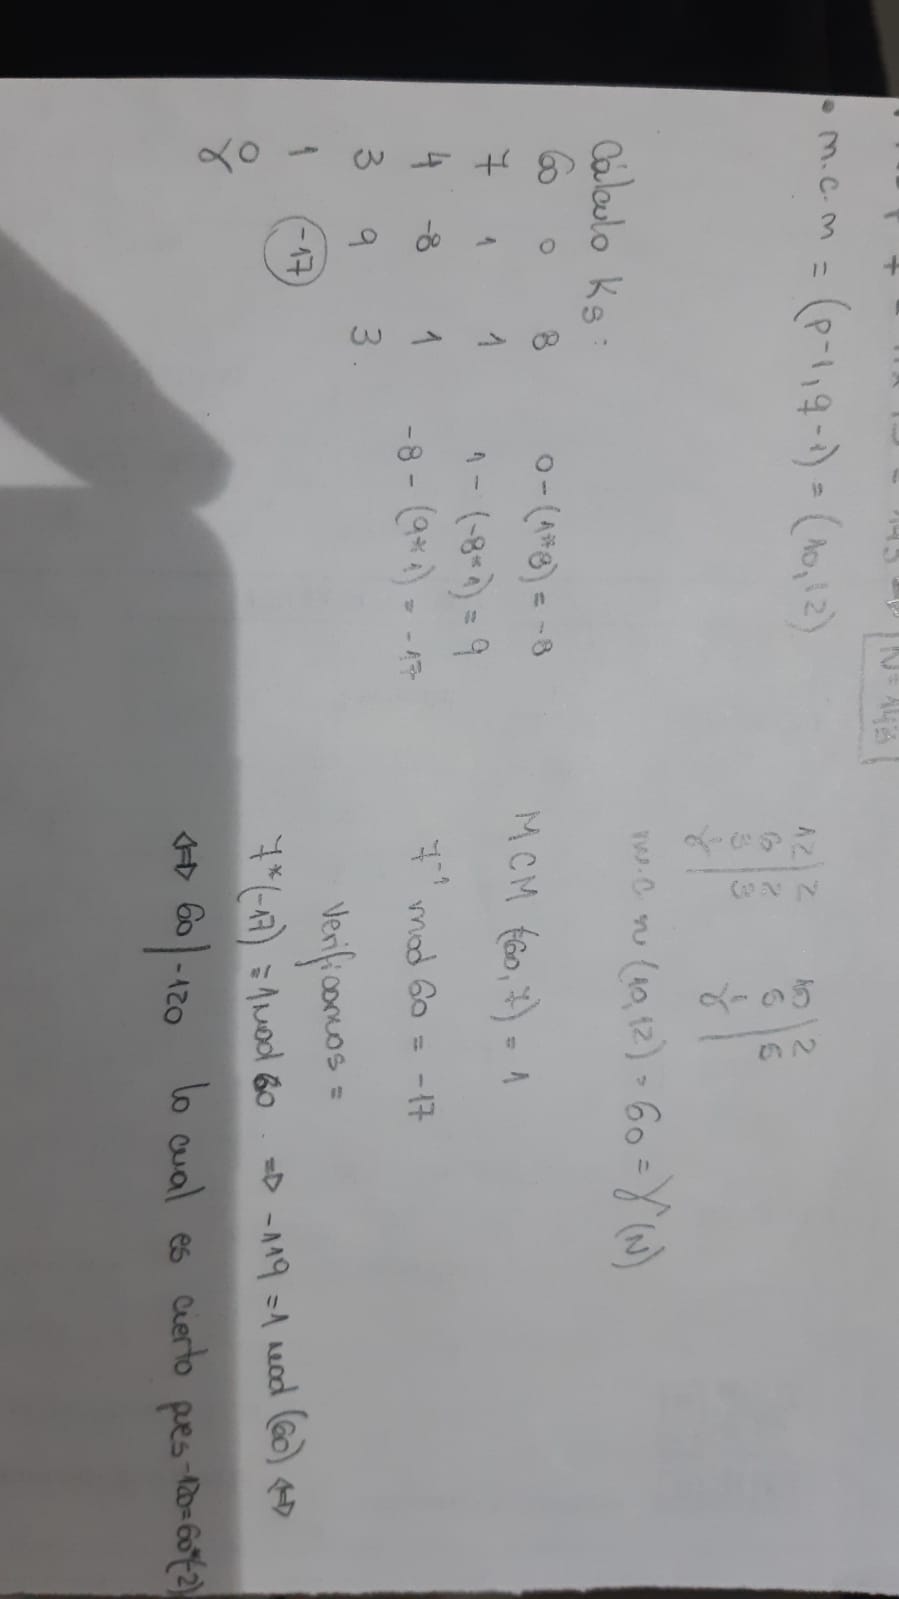 N = 143
• m.c.m = (p-1, q-1) = (10,12)
12 | 2
6 | 2
3 | 3
1
10 | 2
5 | 5
1
m.c.m (10,12) = 60 = γ(N)
Cálculo ks:
60 0 8 0-(1*8) = -8
7 1 1 1-(-8*1) = 9
4 -8 1 -8-(9*1) = -17
3 9 3
1 -17
0
MCM (60,7) = 1
7⁻¹ mod 60 = -17
Verificamos =
7*(-17) = 1 mod 60. => -119 = 1 mod (60) <=>
<=> 60 | -120 lo cual es cierto pues -120=60*(-2)